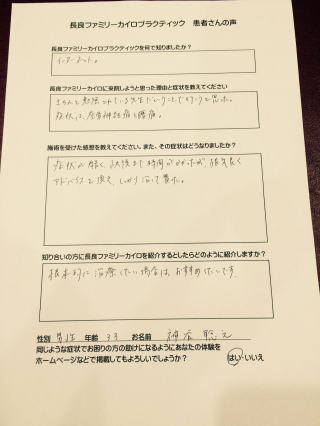 長良ファミリーカイロプラクティック 患者さんの声
長良ファミリーカイロプラクティックを何で知りましたか?
インターネット。
長良ファミリーカイロに来院しようと思った理由と症状を教えてください
きちんと勉強されている先生だということで
症状は、坐骨神経痛と腰痛。
施術を受けた感想を教えてください。また、その症状はどうなりましたか?
症状が酷く、改善まで時間がかかったが、根気良く
アドバイスを頂き、しっかり治って貰た。
知り合いの方に長良ファミリーカイロを紹介するとしたらどのように紹介しますか?
根本的に治療したい場合は、お勧めしたいです。
性別 男性 年齢 33 お名前
同じような症状でお困りの方の助けになるようにあなたの体験を
ホームページなどで掲載してもよろしいでしょうか? はい・いいえ